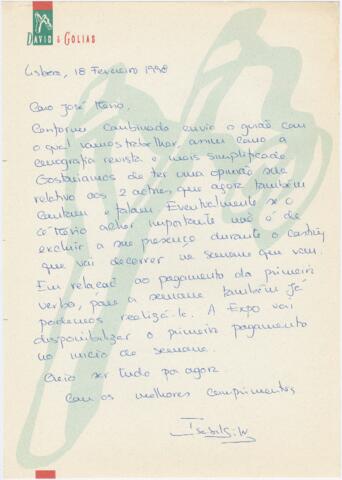 DAVID & GOLIAS
Lisboa, 18 Fevereiro 1998
Caro José Mário.
Conforme combinado envio o guião com
o qual vamos trabalhar, assim como a
cenografia revista e mais simplificada.
Gostaríamos de ter uma opinião sua
relativo aos 2 actores que agora também
cantam e falam. Eventualmente se o
Zé Mário achar importante não é de
excluir a sua presença durante o casting
que vai decorrer na semana que vem.
Em relação ao pagamento da primeira
verba, para a semana também já
podemos realizá-lo. A Expo vai
disponibilizar o primeiro pagamento
no início da semana.
Creio ser tudo por agora.
Com os melhores cumprimentos